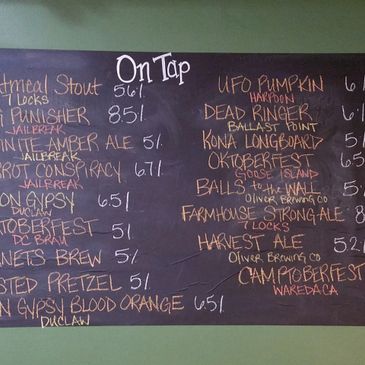 On Tap
atmeal Stout 5.6%
7 LOCKS
i PUNISHER 8.5%
JAILBREAK
FINITE AMBER ALE 5%
JAILBREAK
RROT CONSPIRACY 6.7%
JAILBREAK
ON GYPSY 6.5%
DUCLAW
TOBERFEST 5%
DC BRAU
NETS BREW 5%
STED PRETZEL 5%
N GYPSY BLOOD ORANGE 6.5%
DUCLAW
UFO PUMPKIN 6
HARPOON
DEAD RINGER 6
BALLAST POINT
KONA LONGBOARD 5
OKTOBERFEST 6.5
GOOSE ISLAND
BALLS to the WALL 5
OLIVER BREWING CO
FARMHOUSE STRONG ALE 8
7 LOCKS
HARVEST ALE 5.2
OLIVER BREWING CO
CAMPTOBERFEST
WAREDACA